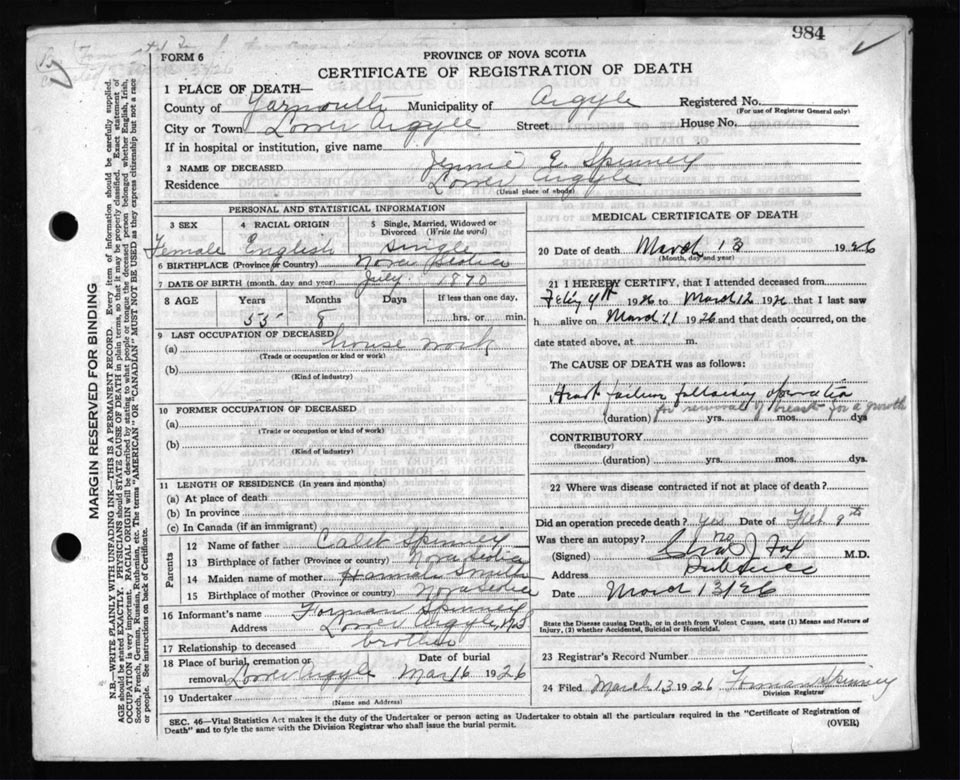 984
FORM 6
PROVINCE OF NOVA SCOTIA
CERTIFICATE OF REGISTRATION OF DEATH
1 PLACE OF DEATH—
County of Yarmouth Municipality of Argyle Registered No.
(For use of Registrar General only)
City or Town Lower Argyle Street House No.
If in hospital or institution, give name
2 NAME OF DECEASED Jennie E. Spinney
Residence Lower Argyle
(Usual place of abode)
PERSONAL AND STATISTICAL INFORMATION
3 SEX 4 RACIAL ORIGIN 5 Single, Married, Widowed or Divorced (Write the word)
Female English Single
6 BIRTHPLACE (Province or Country) Nova Scotia
7 DATE OF BIRTH (month, day and year) July 1870
8 AGE Years Months Days If less than one day,
55 8 hrs. or min.
9 LAST OCCUPATION OF DECEASED
(a) house work
(Trade or occupation or kind or work)
(b)
(Kind of industry)
10 FORMER OCCUPATION OF DECEASED
(a)
(Trade or occupation or kind or work)
(b)
(Kind of industry)
11 LENGTH OF RESIDENCE (In years and months)
(a) At place of death
(b) In province
(c) In Canada (if an immigrant)
Parents
12 Name of father Caleb Spinney
13 Birthplace of father (Province or country) Nova Scotia
14 Maiden name of mother Hannah Smith
15 Birthplace of mother (Province or country) Nova Scotia
16 Informant's name Forman Spinney
Address Lower Argyle, N.S.
17 Relationship to deceased brother
18 Place of burial, cremation or removal Lower Argyle Date of burial Mar 16 1926
19 Undertaker
(Name and Address)
MEDICAL CERTIFICATE OF DEATH
20 Date of death March 13 1926
(Month, day and year)
21 I HEREBY CERTIFY, that I attended deceased from
Feby 4th 1926 to March 12 1926 that I last saw
h alive on March 11 1926 and that death occurred, on
date stated above, at m.
The CAUSE OF DEATH was as follows:
Heart failure following operation
for removal of breast for a growth
(duration) yrs. mos. dys
CONTRIBUTORY
(Secondary)
(duration) yrs. mos. dys.
22 Where was disease contracted if not at place of death?
Did an operation precede death? Yes Date of Feb. 9th
Was there an autopsy? no
(Signed) Fox M.D.
Address Pubnico
Date March 13/26
State the Disease causing Death, or in death from Violent Causes, state (1) Means and Nature of Injury, (2) whether Accidental, Suicidal or Homicidal.
23 Registrar's Record Number
24 Filed March 13 1926 Forman Spinney
Division Registrar
SEC. 46—Vital Statistics Act makes it the duty of the Undertaker or person acting as Undertaker to obtain all the particulars required in the "Certificate of Registration of
Death" and to fyle the same with the Division Registrar who shall issue the burial permit. (OVER)
MARGIN RESERVED FOR BINDING
N.B.—WRITE PLAINLY WITH UNFADING INK—THIS IS A PERMANENT RECORD. Every item of information should be carefully supplied.
AGE should be stated EXACTLY. PHYSICIANS should STATE CAUSE OF DEATH in plain terms, so that it may be properly classified. Exact statement of
OCCUPATION is very important. RACIAL ORIGIN will be described by stating to what people or tongue the deceased person belonged whether English, Irish,
Scotch, French, German, Russian, Ruthenian, etc. The terms "AMERICAN" OR "CANADIAN" MUST NOT BE USED as they express citizenship but not a race
or people. See instructions on back of Certificate.